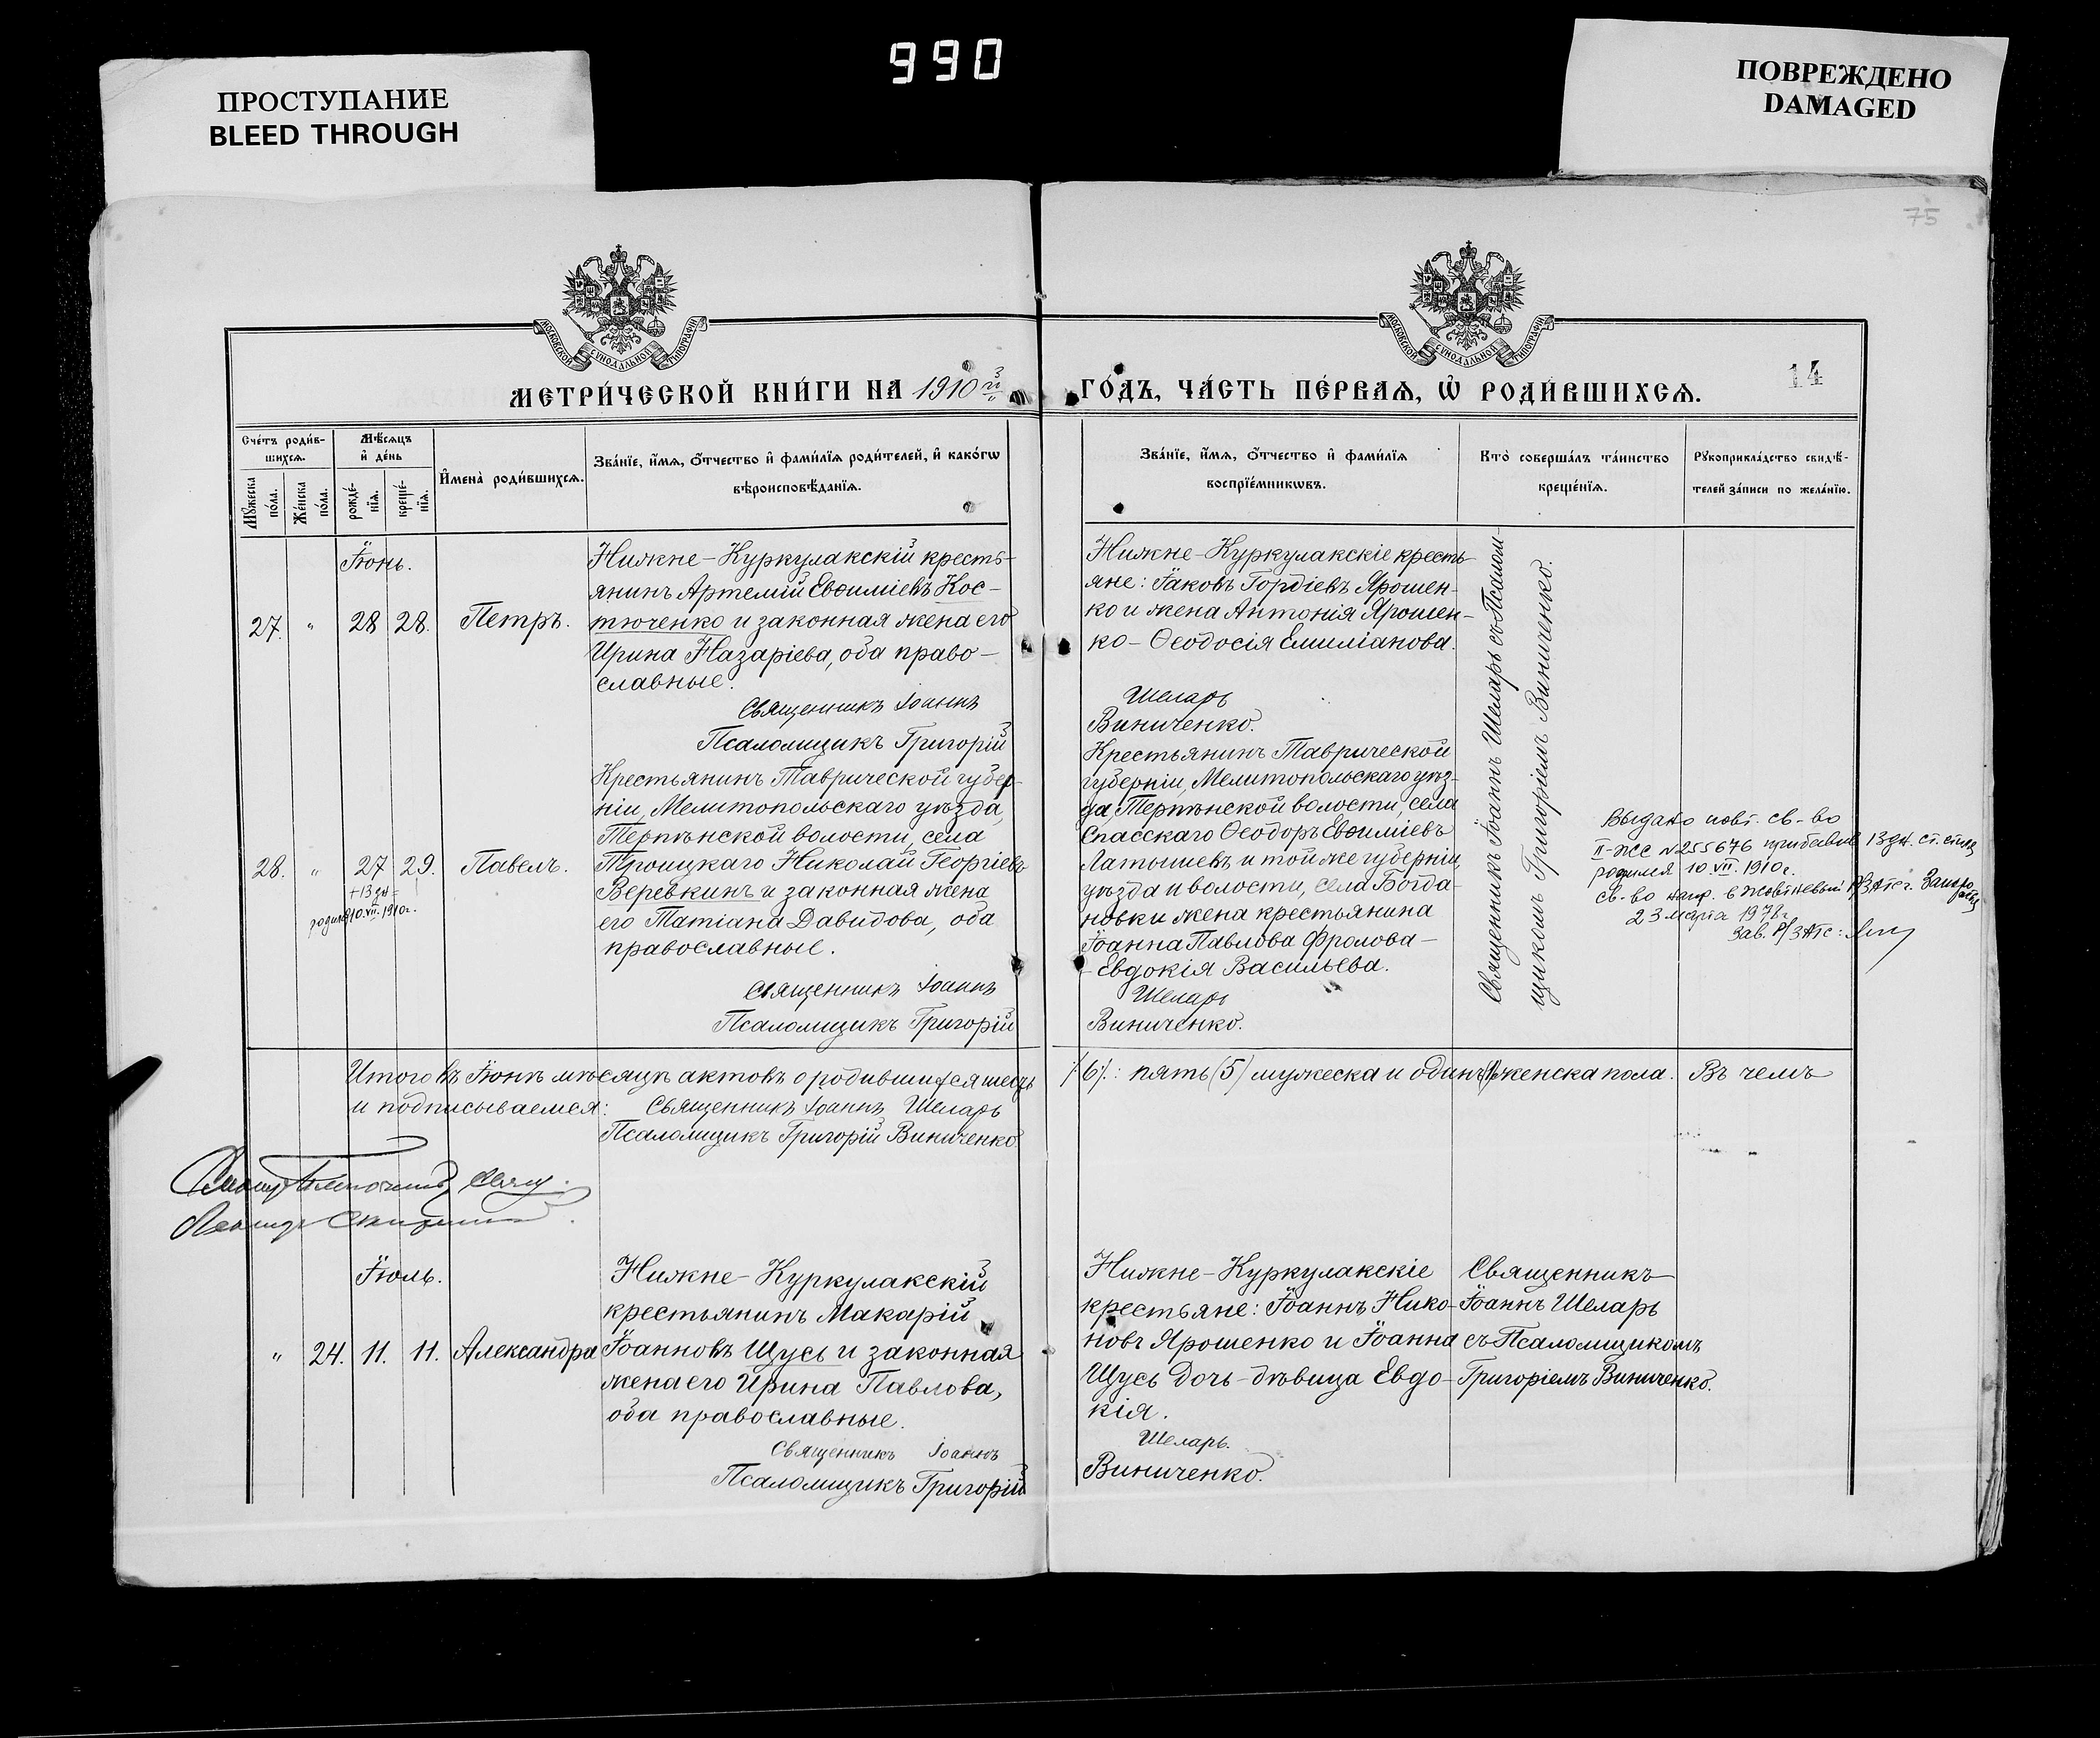 990
ПРОСТУПАНИЕ
BLEED THROUGH
ПОВРЕЖДЕНО
DAMAGED
75
МОСКОВСКОЙ СУНОДАЛЬНОЙ ТИПОГРАФІИ
МЕТРИ́ЧЕСКОЙ КНИ́ГИ НА 1910 й
МОСКОВСКОЙ СУНОДАЛЬНОЙ ТИПОГРАФІИ
ГО́ДЪ, ЧА́СТЬ ПЕ́РВАѦ, Ѡ҆ РОДИ́ВШИХСѦ.
14
Сче́тъ роди́в-
шихсѧ.
Мѣ́сѧцъ
и҆ де́нь
Мꙋ́жеска
по́ла.
Же́нска
по́ла.
рожде́-
нїѧ.
креще́-
нїѧ.
И҆мена̀ роди́вшихсѧ.
Зва́нїе, и҆́мѧ, ѻ҆́тчество и҆ фами́лїѧ роди́телей, и҆ како́гѡ
вѣроисповѣ́данїѧ.
Зва́нїе, и҆́мѧ, ѻ҆́тчество и҆ фами́лїѧ
воспрїе́мникѡвъ.
Кто̀ соверша́лъ та́инство
креще́нїѧ.
Рꙋкоприкла́дство свидѣ́-
телей за́писи по жела́нїю.
Іюнь.
27. " 28 28. Петръ.
Нижне-Куркулакскій кресть-
янинъ Артемій Евѳиміевъ Кос-
тюченко и законная жена его
Ирина Назаріева, оба право-
славные.
Священникъ Іоаннъ
Псаломщикъ Григорій
Нижне-Куркулакскіе кресть-
яне: Іаковъ Гордіевъ Ярошен-
ко и жена Антонія Ярошен-
ко - Ѳеодосія Емиліанова.
Шеларь
Виниченко.
Священникъ Іоаннъ Шеларь съ Псалом-
щикомъ Григоріемъ Виниченко.
28. " 27 29. Павелъ.
+13 дн =
родился 10.VII.1910г.
Крестьянинъ Таврической губер-
ніи, Мелитопольскаго уѣзда,
Терпѣнской волости, села
Троицкаго Николай Георгіевъ
Веревкинъ и законная жена
его Татіана Давидова, оба
православные.
Священникъ Іоаннъ
Псаломщикъ Григорій
Крестьянинъ Таврической
губерніи, Мелитопольскаго уѣз-
да, Терпѣнской волости, села
Спасскаго Ѳеодоръ Евѳиміевъ
Латышевъ и той же губерніи,
уѣзда и волости, села Богда-
новки жена крестьянина
Іоанна Павлова Фролова -
- Евдокія Васильева.
Шеларь
Виниченко.
Выдано повт. св-во
II-ЖС №255676 прибавив 13 дн. ст. стиля
родился 10.VII.1910г.
св-во напр. в Жовтневый Р/ЗАГС г. Запорожья
23 марта 1978г
Зав. Р/ЗАГС:
Итого въ Іюнѣ мѣсяцѣ актовъ о родившихся шесть /:6/.: пять (5) мужеска и одинъ (1) женска пола. Въ чемъ
и подписываемся: Священникъ Іоаннъ Шеларь
Псаломщикъ Григорій Виниченко
Іюль.
" 24. 11. 11. Александра
Нижне-Куркулакскій
крестьянинъ Макарій
Іоанновъ Щусь и законная
жена его Ирина Павлова,
оба православные.
Священникъ Іоаннъ
Псаломщикъ Григорій
Нижне-Куркулакскіе
крестьяне: Іоаннъ Нико-
новъ Ярошенко и Іоанна
Щусь дочь-дѣвица Евдо-
кія.
Шеларь.
Виниченко.
Священникъ
Іоаннъ Шеларь
съ Псаломщикомъ
Григоріемъ Виниченко.